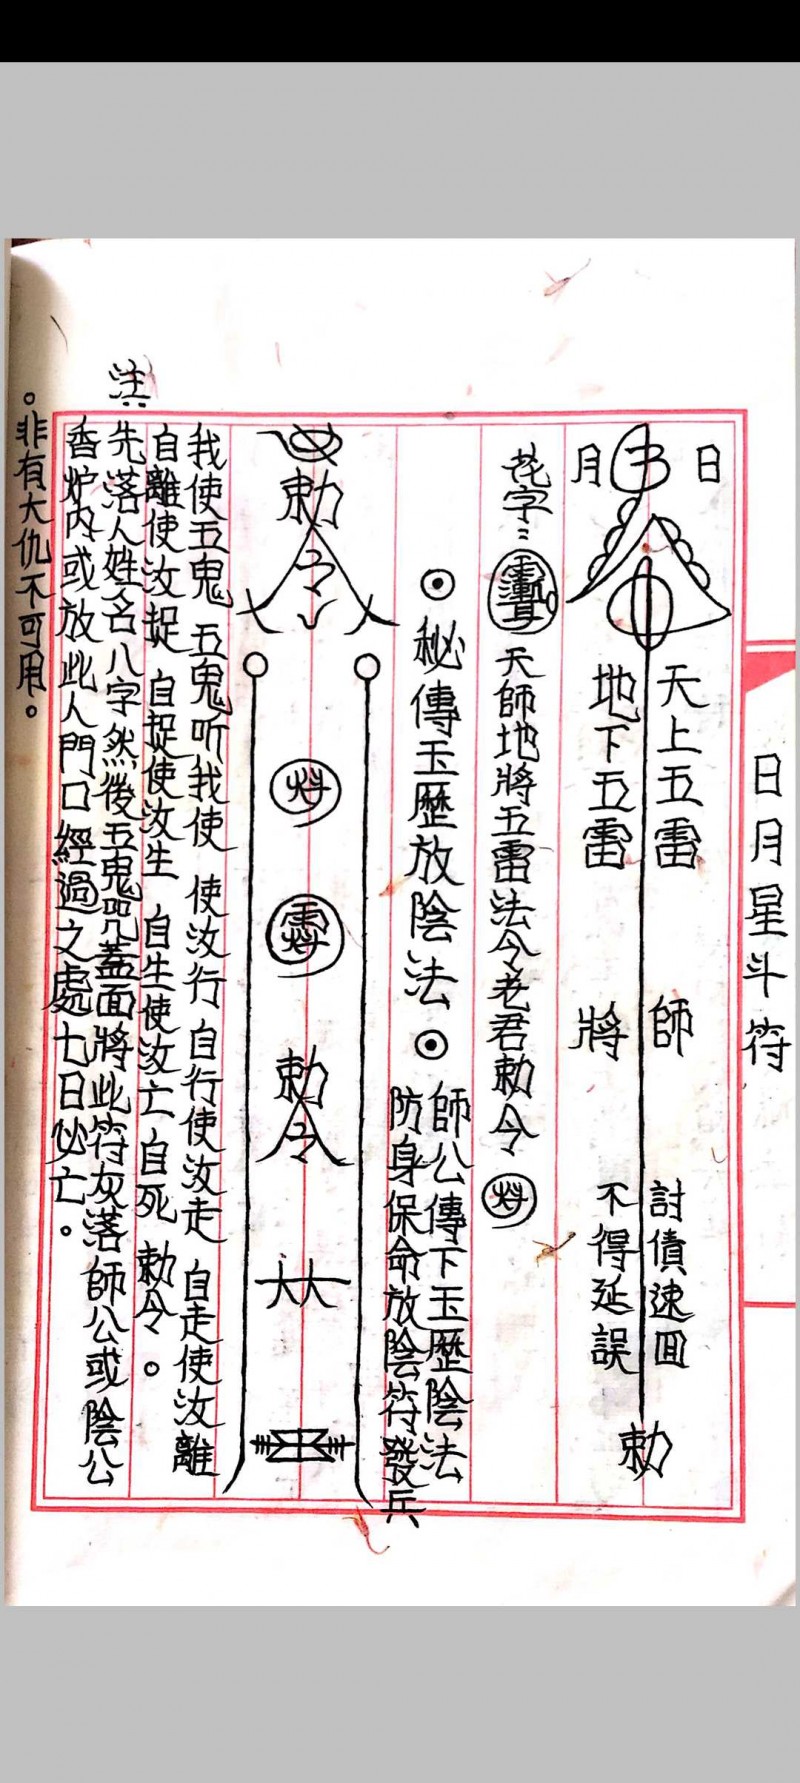 日月星斗符
日
月
天上五雷 師 討債速回
地下五雷 將 不得延誤
勅
花字：
天師地將五雷法令老君勅令
⊙秘傳玉歷放陰法⊙
師公傳下玉歷陰法
防身保命放陰符發兵
勅令
勅令
我使五鬼 五鬼听我使 使汝行 自行使汝走 自走使汝離
自離使汝捉 自捉使汝生 自生使汝亡 自死 勅令。
注：
先落人姓名八字然後五鬼咒蓋面將此符灰落師公或陰公
香炉内或放此人門口經過之處七日必亡。
。非有大仇不可用。